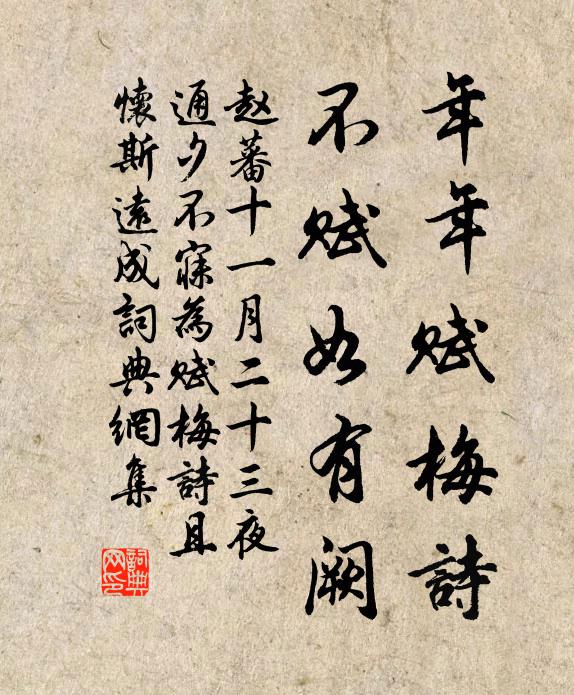 年年赋梅詩
不赋如有闕
赵蕃十一月二十三夜
通夕不寐為赋梅詩且
懷斯遠成詞典網集
詞典
网印